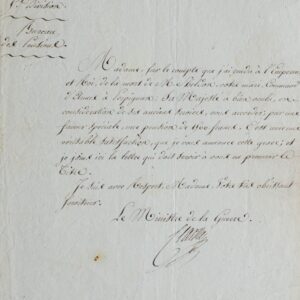 Division
Bureau
des Pensions.
Madame, sur le compte que j'ai rendu à l'Empereur
et Roi, de la mort de M. votre mari, Commissaire
à Perpignan, Sa Majesté a bien voulu, en
considération de ses anciens services, vous accorder, par une
faveur spéciale, une pension de francs. C'est avec une
véritable satisfaction, que je vous annonce cette grace; et
je joins ici la lettre qui doit servir à vous en procurer le
Titre.
Je suis avec Respect, Madame, Votre très obéissant
serviteur.
Le Ministre de la Guerre